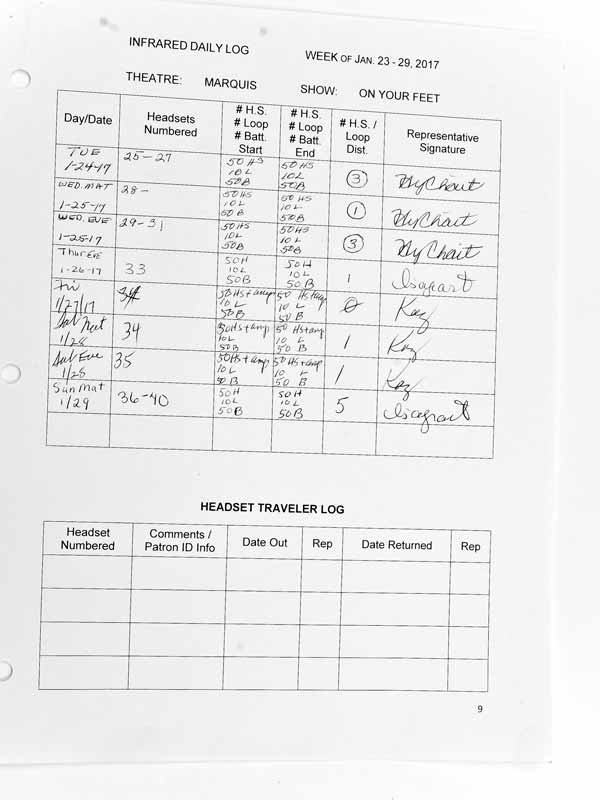 INFRARED DAILY LOG
WEEK OF JAN. 23 - 29, 2017
THEATRE: MARQUIS SHOW: ON YOUR FEET
Day/Date
Headsets Numbered
# H.S. # Loop # Batt. Start
# H.S. # Loop # Batt. End
# H.S. / Loop Dist.
Representative Signature
TUE 1-24-17
25-27
50 HS 10 L 50B
50 HS 10L 50B
3
WED. MAT 1-25-17
28-
50 HS 10 L 50 B
50 HS 10 L 50B
1
WED. EVE 1-25-17
29-31
50HS 10L 50B
50HS 10 L 50B
3
Thur EVE 1-26-17
33
50H 10L 50B
50H 10L 50B
1
Fri 1/27/17
50 Hs + amp 10 L 50B
50 Hs + amp 10 L 50 B
0
Kay
Sat Mat 1/28
34
50Hs + amp 10L 50B
50 Hs + amp 10 L 50 B
1
Kay
Sat Eve 1/28
35
50Hs + amp 10 L 50 B
50Hs + amp 10 L 50 B
1
Kay
Sun Mat 1/29
36-40
50H 10L 50B
50H 10L 50B
5
HEADSET TRAVELER LOG
Headset Numbered
Comments / Patron ID Info
Date Out
Rep
Date Returned
Rep
9